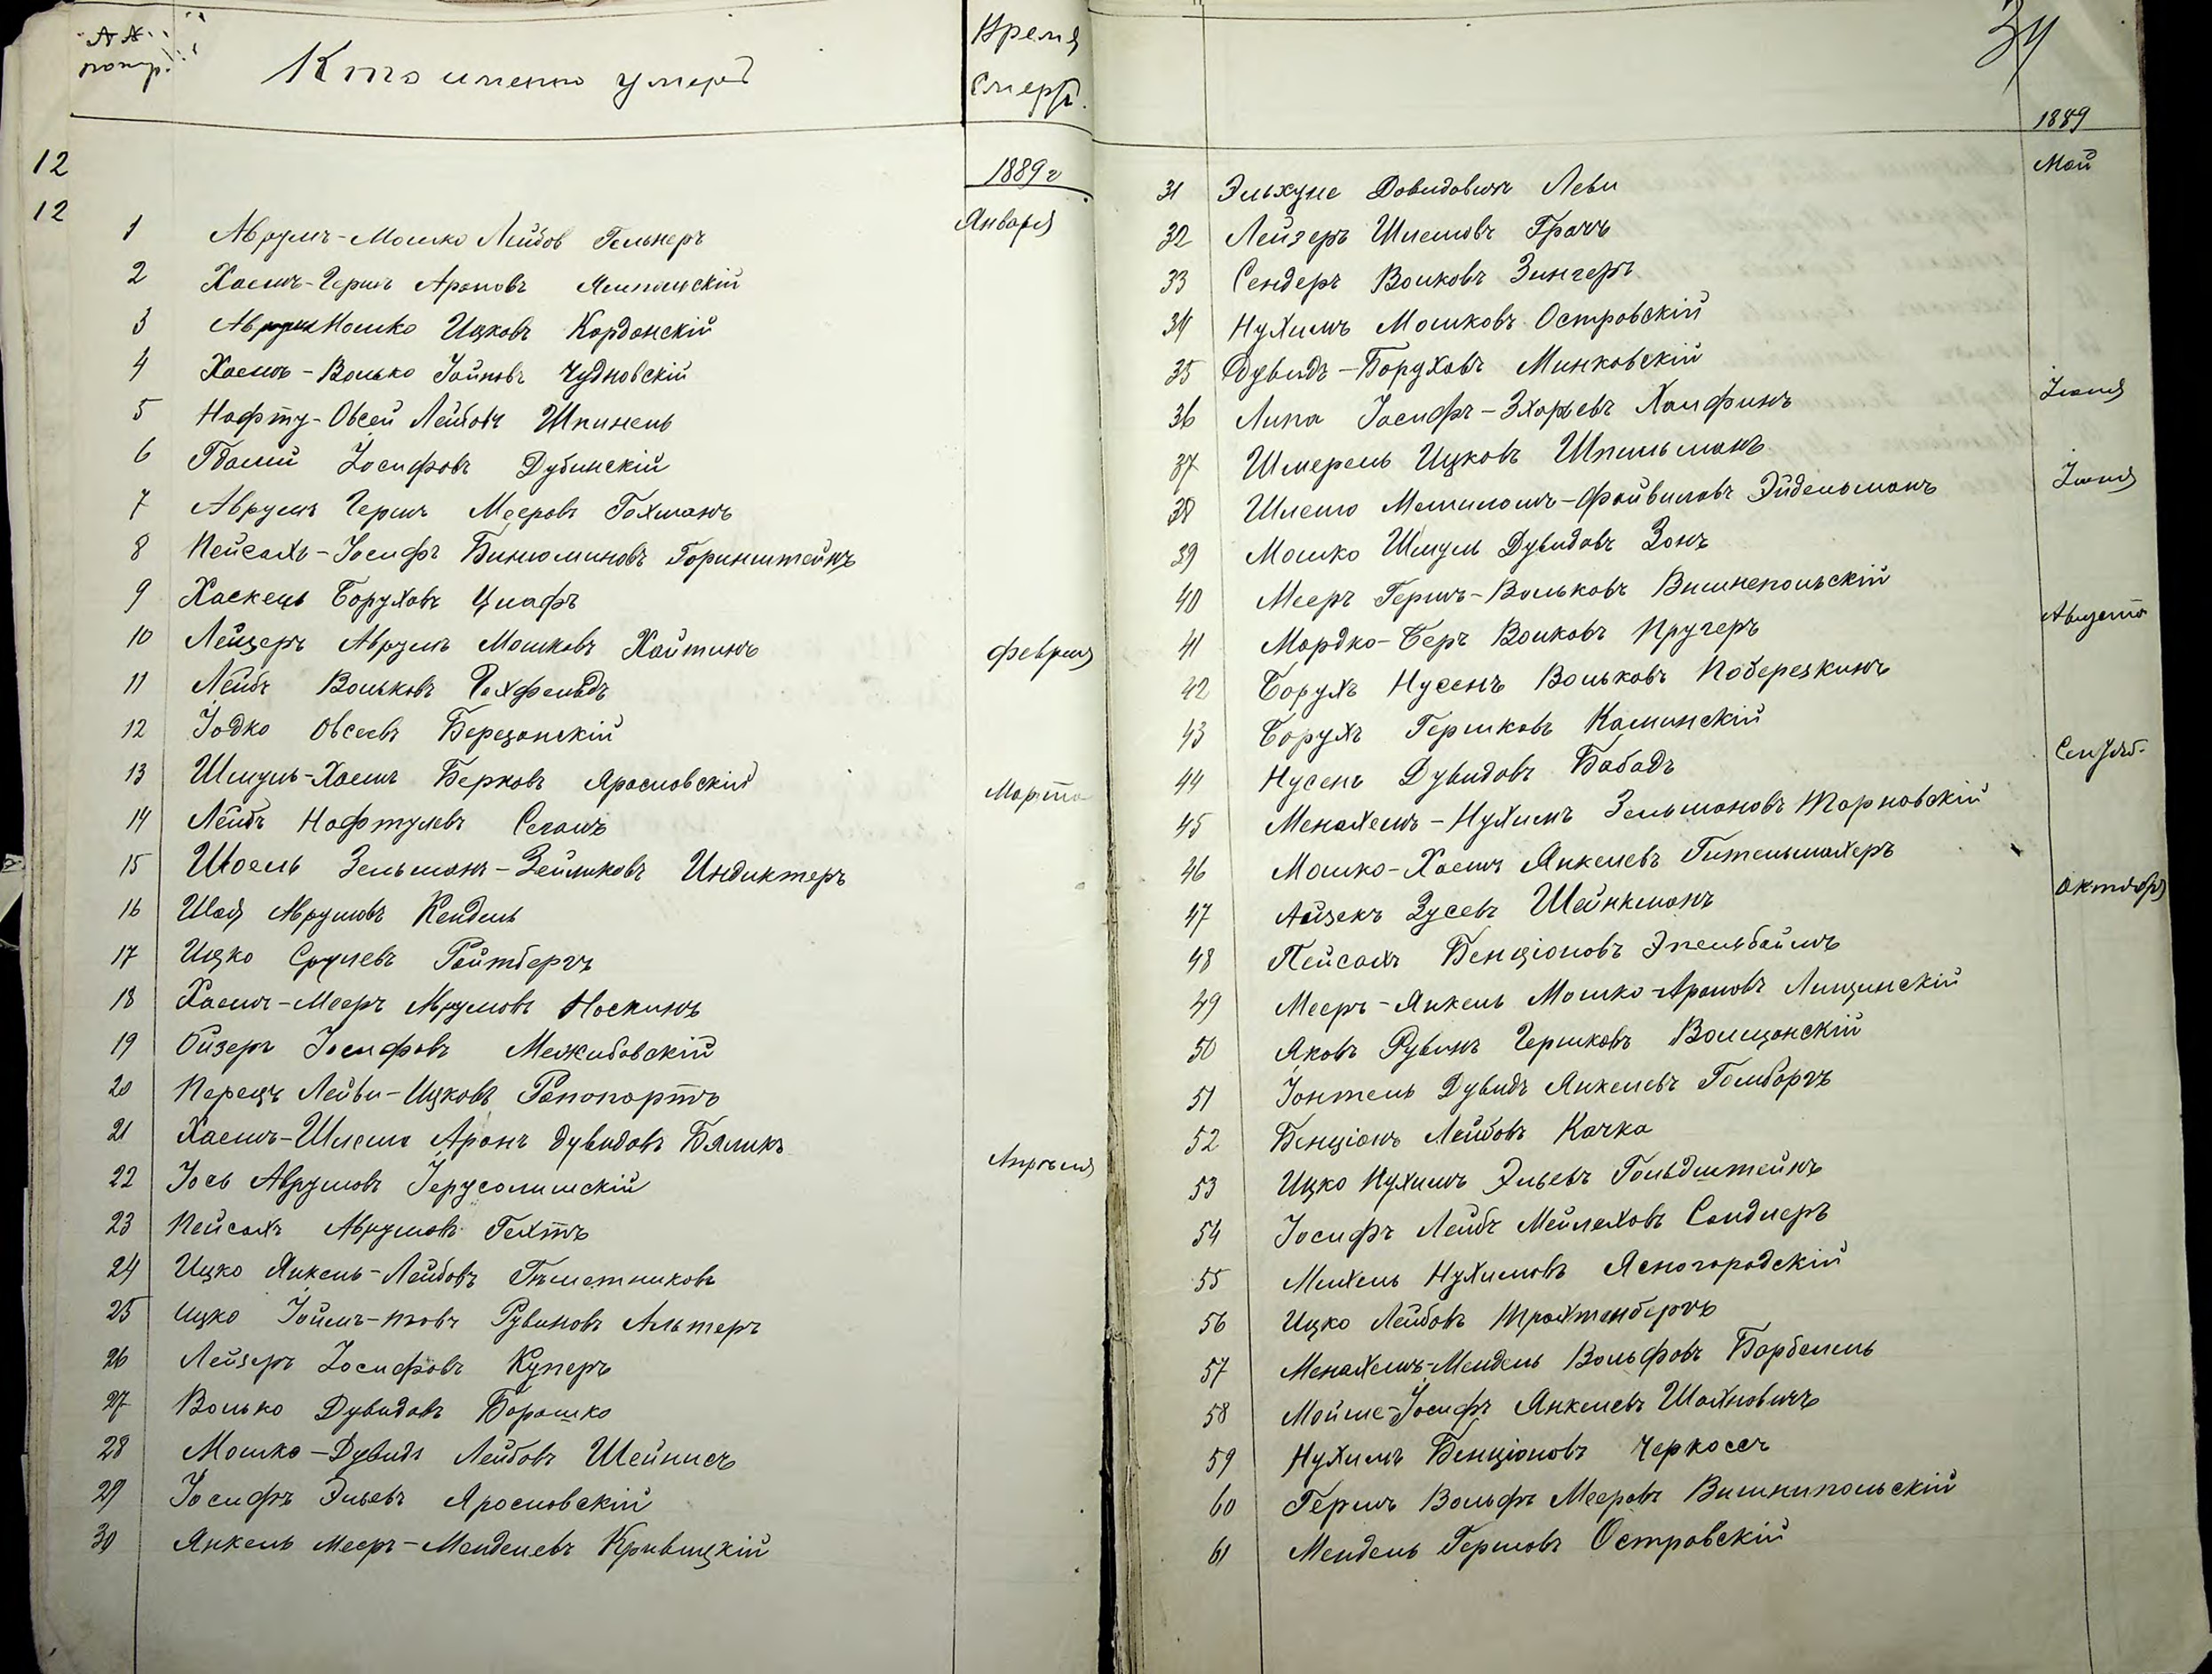 №№ попор.
Кто именно умеръ
Время Смерт.
12
1889 г
12
1 Аврумъ-Мошко Лейбов Гельнеръ Января
2 Хаемъ-Гершъ Ароновъ Ямпольскій
3 Аврум Мошко Ицковъ Кордонскій
4 Хаемъ-Волько Іойновъ Чудновскій
5 Нафту-Овсей Лейбовъ Шпинель
6 Гдалій Іосифовъ Дубинскій
7 Аврумъ Гершъ Мееровъ Гохманъ
8 Пейсахъ-Іосифъ Биньоминовъ Горинштейнъ
9 Хаскель Боруховъ Цлафъ
10 Лейзеръ Аврумъ Мошковъ Хайтинъ Февраля
11 Лейбъ Вольковъ Гохфельдъ
12 Іодко Овсеевъ Березонскій
13 Шмуль-Хаемъ Берковъ Ярославскій Марта
14 Лейбъ Нафтулевъ Сегалъ
15 Шоель Зельманъ-Зейликовъ Индиктеръ
16 Шая Аврумовъ Кендель
17 Ицко Срулевъ Райтбергъ
18 Хаемъ-Мееръ Аврумовъ Носкинъ
19 Ойзеръ Іосифовъ Межибовскій
20 Перецъ Лейви-Ицковъ Рапопортъ
21 Хаемъ-Шлема Аронъ Дувидовъ Бяликъ
22 Іось Аврумовъ Іерусолимскій Апрѣля
23 Пейсахъ Аврумовъ Гехтъ
24 Ицко Янкель-Лейбовъ
25 Ицко Іоймъ-товъ Рувиновъ Альтеръ
26 Лейзеръ Іосифовъ Куперъ
27 Волько Дувидовъ Борошко
28 Мошко-Дувидъ Лейбовъ Шейнисъ
29 Іосифъ Эльевъ Ярославскій
30 Янкель Мееръ-Менделевъ Кривицкій
34
1889
31 Эльхуне Довидовичъ Леви Май
32 Лейзеръ Шлемовъ Грачъ
33 Сендеръ Волковъ Зингеръ
34 Нухимъ Мошковъ Островскій
35 Дувидъ-Боруховъ Минковскій
36 Липа Іосифъ-Зхарьевъ Халфинъ Іюня
37 Шмерель Ицковъ Шпильманъ
38 Шлемо Мотиломъ-Файвиловъ Эйдельманъ Іюля
39 Мошко Шмуль Дувидовъ Зонъ
40 Мееръ Гершъ-Вольковъ Вишнепольскій
41 Мордко-Беръ Волковъ Пругеръ Августа
42 Борухъ Нусенъ Вольковъ Поберезкинъ
43 Борухъ Гершковъ Каминскій
44 Нусенъ Дувидовъ Бабадъ Сентяб.
45 Менахемъ-Нухимъ Зельмановъ Тарновскій
46 Мошко-Хаемъ Янкелевъ Гительмахеръ
47 Айзекъ Зусевъ Шейнкманъ Октября
48 Пейсахъ Бенціоновъ Эпельбаймъ
49 Мееръ-Янкель Мошко-Ароновъ Лищинскій
50 Яковъ Рувинъ Гершковъ Волщонскій
51 Іонтель Дувидъ Янкелевъ Гомбаргъ
52 Бенціонъ Лейбовъ Качка
53 Ицко Нухимъ Эльевъ Гольдштейнъ
54 Іосифъ Лейбъ Мейлаховъ Сандлеръ
55 Михель Нухимовъ Ясногородскій
56 Ицко Лейбовъ Трахтенбергъ
57 Менахемъ-Мендель Вольфовъ Барбанель
58 Мойше-Іосифъ Янкелевъ Шахновичъ
59 Нухимъ Бенціоновъ Черкосъ
60 Гершъ Вольфъ Мееровъ Вишнипольскій
61 Мендель Гершовъ Островскій